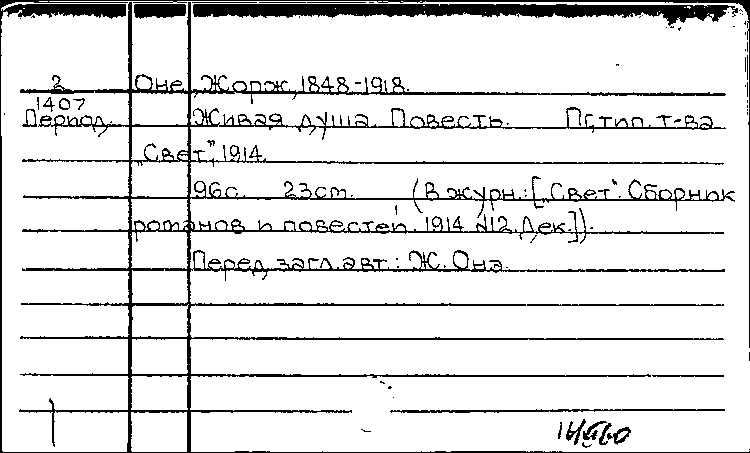 2 Оне, Жорж, 1848-1918.
1407
Период. Живая душа. Повесть. Пг, тип. т-ва
„Свет", 1914.
96с. 23см. (В журн.: [„Свет". Сборник
романов и повестей. 1914. №12. Дек.]).
Перед загл. авт.: Ж. Онэ.